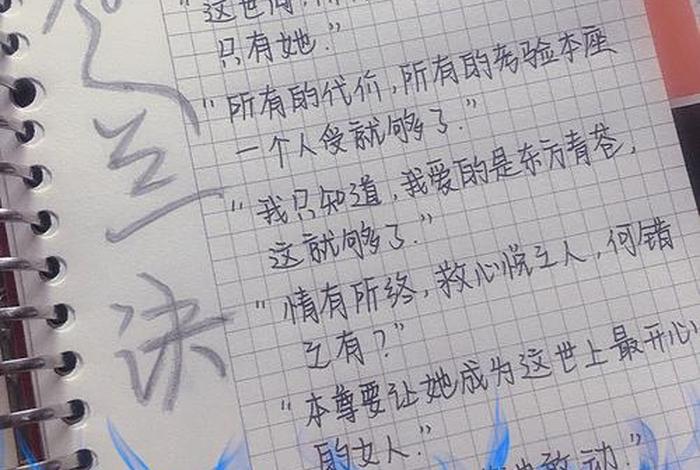 兰
诀
"这世间,
只有她."
"所有的代价,所有的考验本座
一个人受就够了."
"我只知道,我爱的是东方青苍,
这就够了."
"情有所终,救心悦之人,何错
之有?"
"本尊要让她成为这世上最开心
的女人."
敢动."